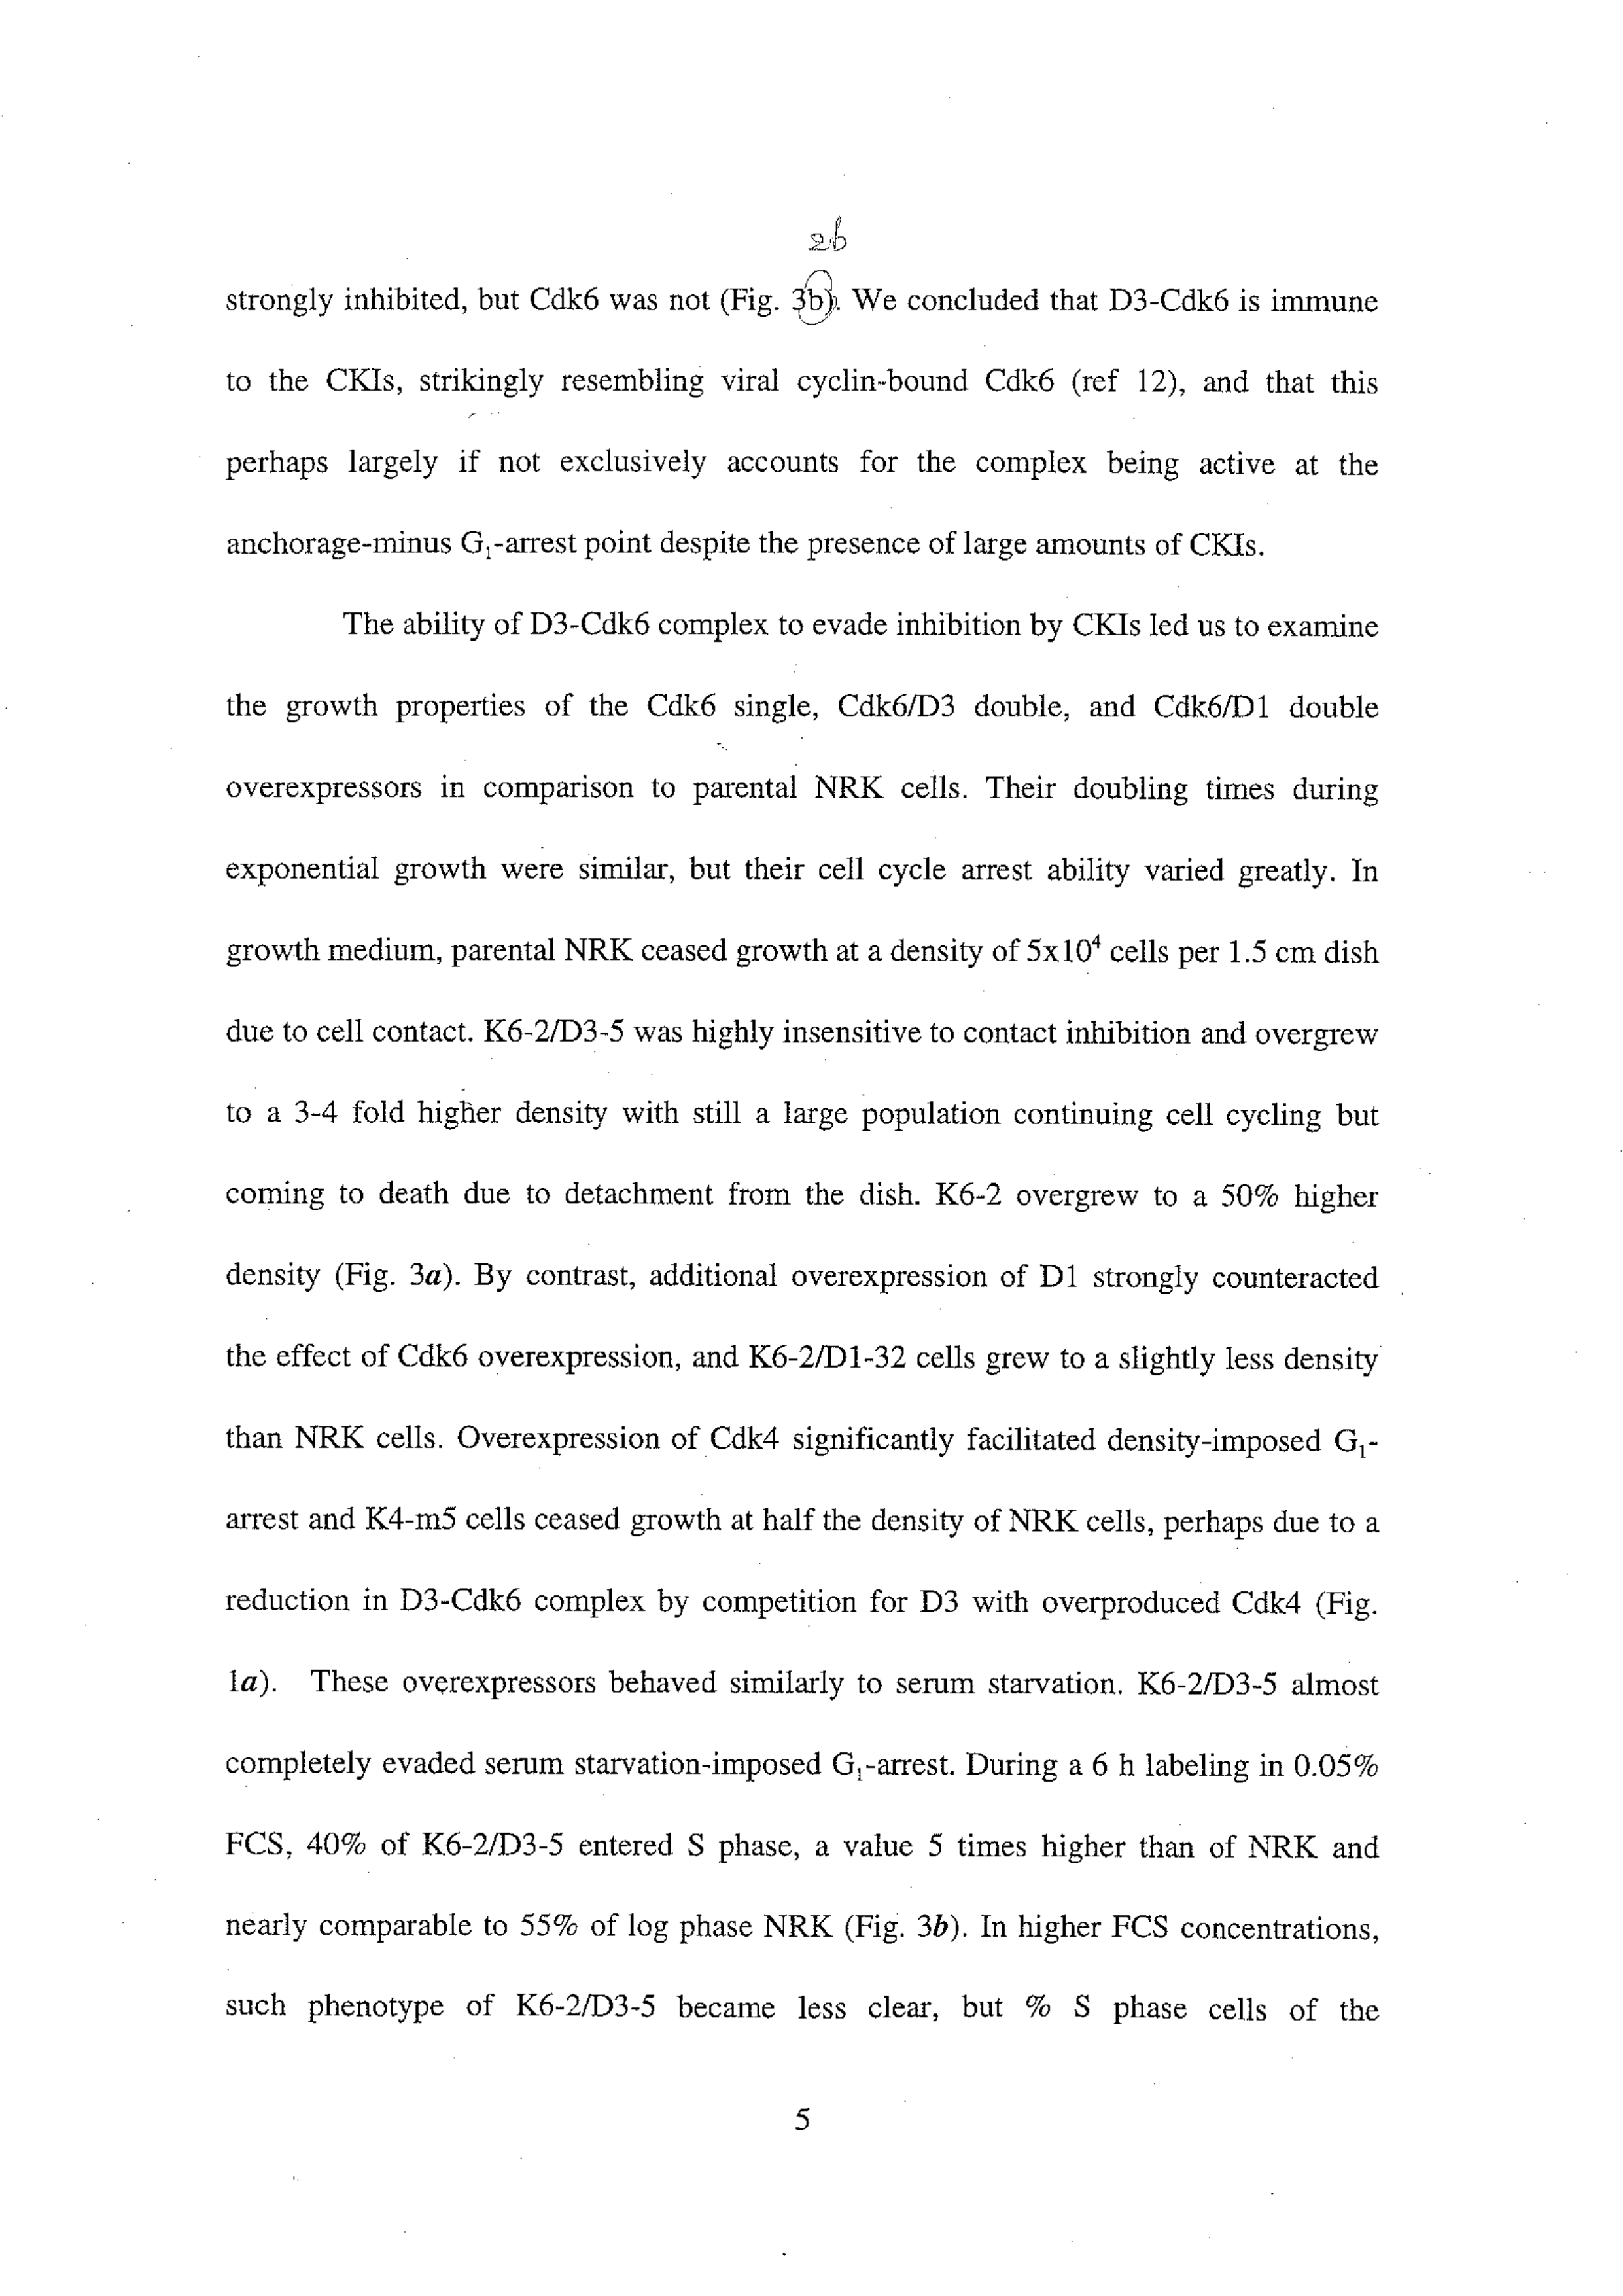 2b
strongly inhibited, but Cdk6 was not (Fig. 3b). We concluded that D3-Cdk6 is immune
to the CKIs, strikingly resembling viral cyclin-bound Cdk6 (ref 12), and that this
perhaps largely if not exclusively accounts for the complex being active at the
anchorage-minus G₁-arrest point despite the presence of large amounts of CKIs.
The ability of D3-Cdk6 complex to evade inhibition by CKIs led us to examine
the growth properties of the Cdk6 single, Cdk6/D3 double, and Cdk6/D1 double
overexpressors in comparison to parental NRK cells. Their doubling times during
exponential growth were similar, but their cell cycle arrest ability varied greatly. In
growth medium, parental NRK ceased growth at a density of 5x10⁴ cells per 1.5 cm dish
due to cell contact. K6-2/D3-5 was highly insensitive to contact inhibition and overgrew
to a 3-4 fold higher density with still a large population continuing cell cycling but
coming to death due to detachment from the dish. K6-2 overgrew to a 50% higher
density (Fig. 3a). By contrast, additional overexpression of D1 strongly counteracted
the effect of Cdk6 overexpression, and K6-2/D1-32 cells grew to a slightly less density
than NRK cells. Overexpression of Cdk4 significantly facilitated density-imposed G₁-
arrest and K4-m5 cells ceased growth at half the density of NRK cells, perhaps due to a
reduction in D3-Cdk6 complex by competition for D3 with overproduced Cdk4 (Fig.
1a). These overexpressors behaved similarly to serum starvation. K6-2/D3-5 almost
completely evaded serum starvation-imposed G₁-arrest. During a 6 h labeling in 0.05%
FCS, 40% of K6-2/D3-5 entered S phase, a value 5 times higher than of NRK and
nearly comparable to 55% of log phase NRK (Fig. 3b). In higher FCS concentrations,
such phenotype of K6-2/D3-5 became less clear, but % S phase cells of the
5